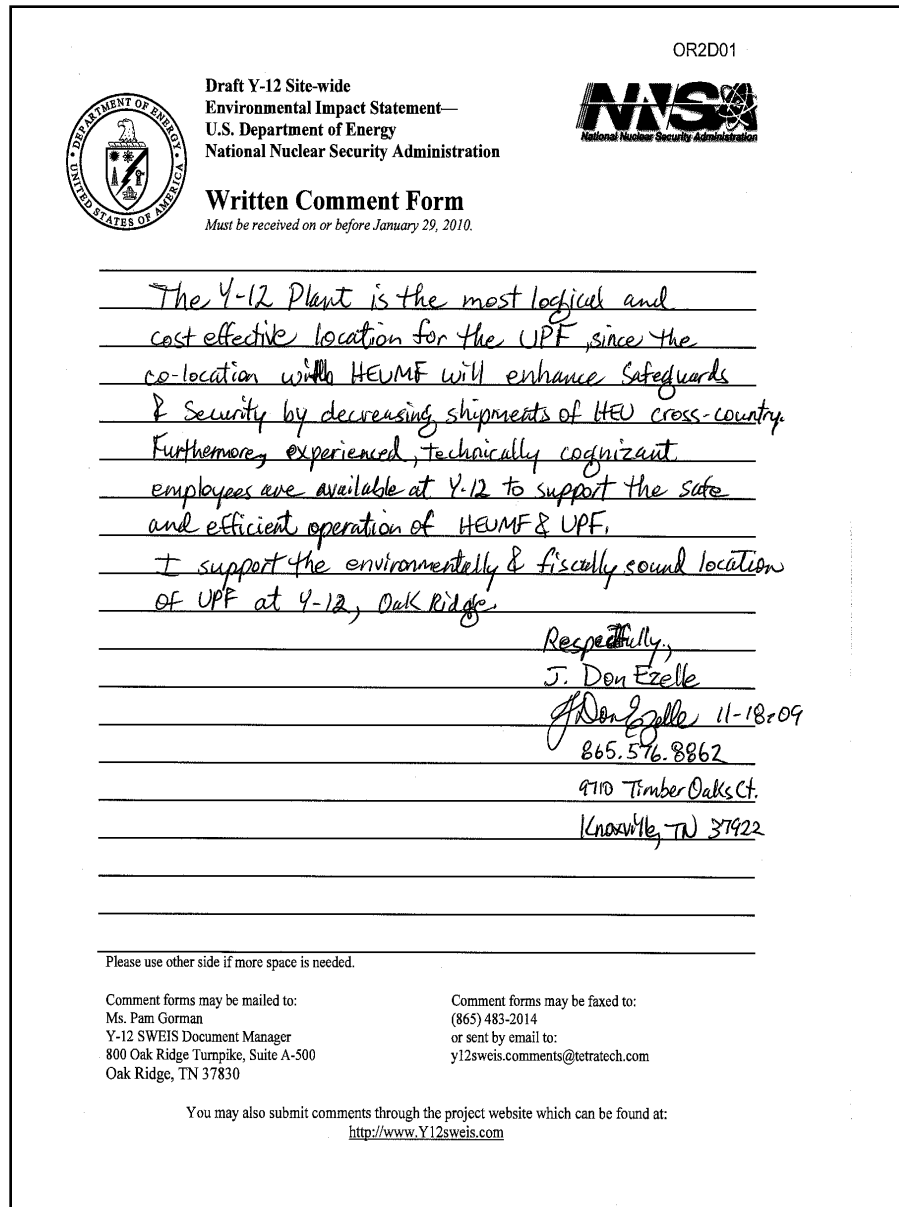 OR2D01
Draft Y-12 Site-wide
Environmental Impact Statement—
U.S. Department of Energy
National Nuclear Security Administration
DEPARTMENT OF ENERGY
UNITED STATES OF AMERICA
NNSA
National Nuclear Security Administration
Written Comment Form
Must be received on or before January 29, 2010.
The Y-12 Plant is the most logical and
cost effective location for the UPF, since the
co-location with HEUMF will enhance Safeguards
& Security by decreasing shipments of HEU cross-country.
Furthermore, experienced, technically cognizant
employees are available at Y-12 to support the safe
and efficient operation of HEUMF & UPF.
I support the environmentally & fiscally sound location
of UPF at Y-12, Oak Ridge.
Respectfully,
J. Don Ezelle
J Don Ezelle 11-18-09
865.576.8862
9710 Timber Oaks Ct.
Knoxville, TN 37922
Please use other side if more space is needed.
Comment forms may be mailed to:
Ms. Pam Gorman
Y-12 SWEIS Document Manager
800 Oak Ridge Turnpike, Suite A-500
Oak Ridge, TN 37830
Comment forms may be faxed to:
(865) 483-2014
or sent by email to:
y12sweis.comments@tetratech.com
You may also submit comments through the project website which can be found at:
http://www.Y12sweis.com